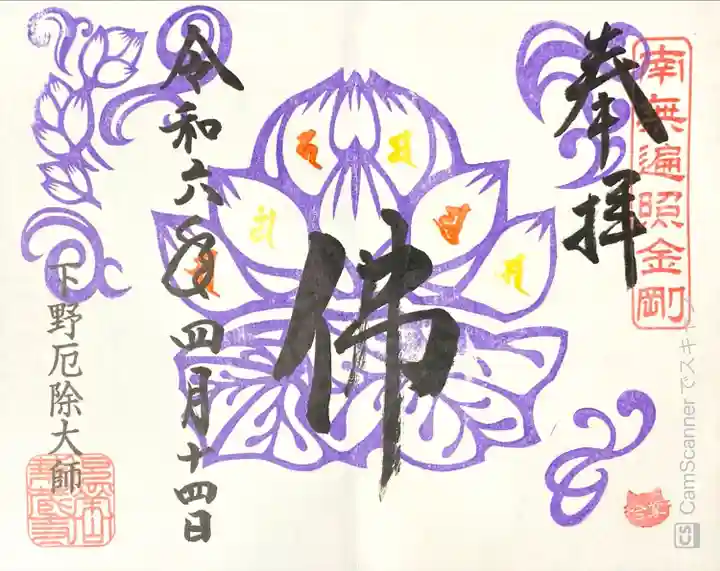 南無遍照金剛
奉拝
佛
令和六年四月十四日
下野厄除大師
CamScanner でスキャン
CS